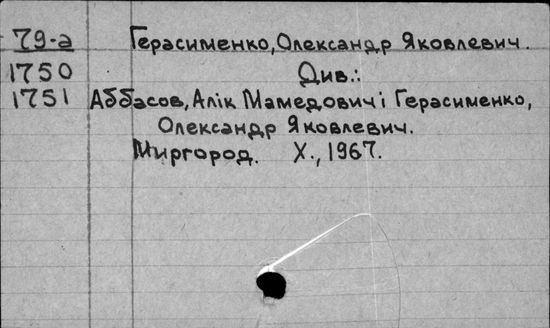 79-а Герасименко, Олександр Яковлевич.
1750 Див.:
1751 Аббасов, Алік Мамедович і Герасименко,
Олександр Яковлевич.
Миргород. Х., 1967.